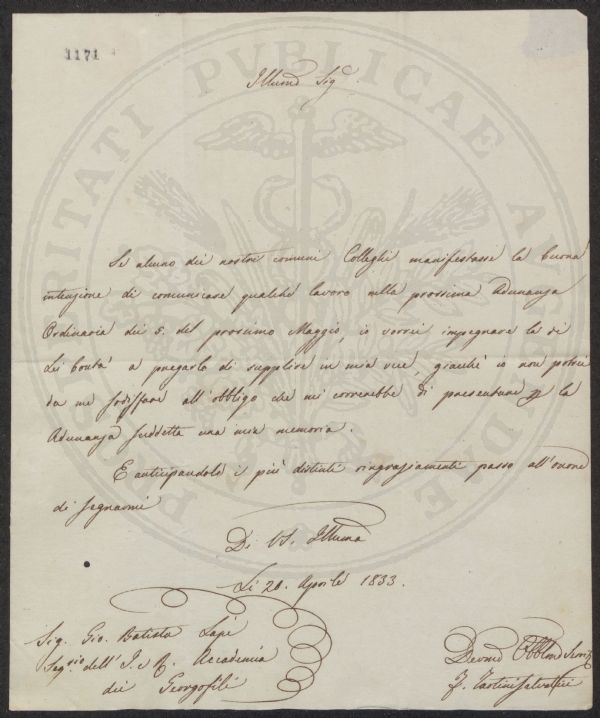 1171
PROSPERITATI PVBLICAE AVGENDAE
Illmo Sigr
Se alcuno dei nostri comuni Colleghi manifestasse la buona
intenzione di comunicare qualche lavoro nella prossima Adunanza
Ordinaria dei 5. del prossimo Maggio, io vorrei impegnare la di
Lei bontà a pregarlo di supplire in mia vece, giacchè io non potrei
da me sodisfare all'obbligo che mi correrebbe di presentare p la
Adunanza suddetta una mia memoria.
E anticipandole i più distinti ringraziamenti passo all'onore
di segnarmi
Di VS. Illma
Li 20. Aprile 1833.
Sig. Gio. Batista Lapi
Segrio dell'I. e R. Accademia
dei Georgofili
Devmo Obblmo Serv
F. Tartini Salvatici